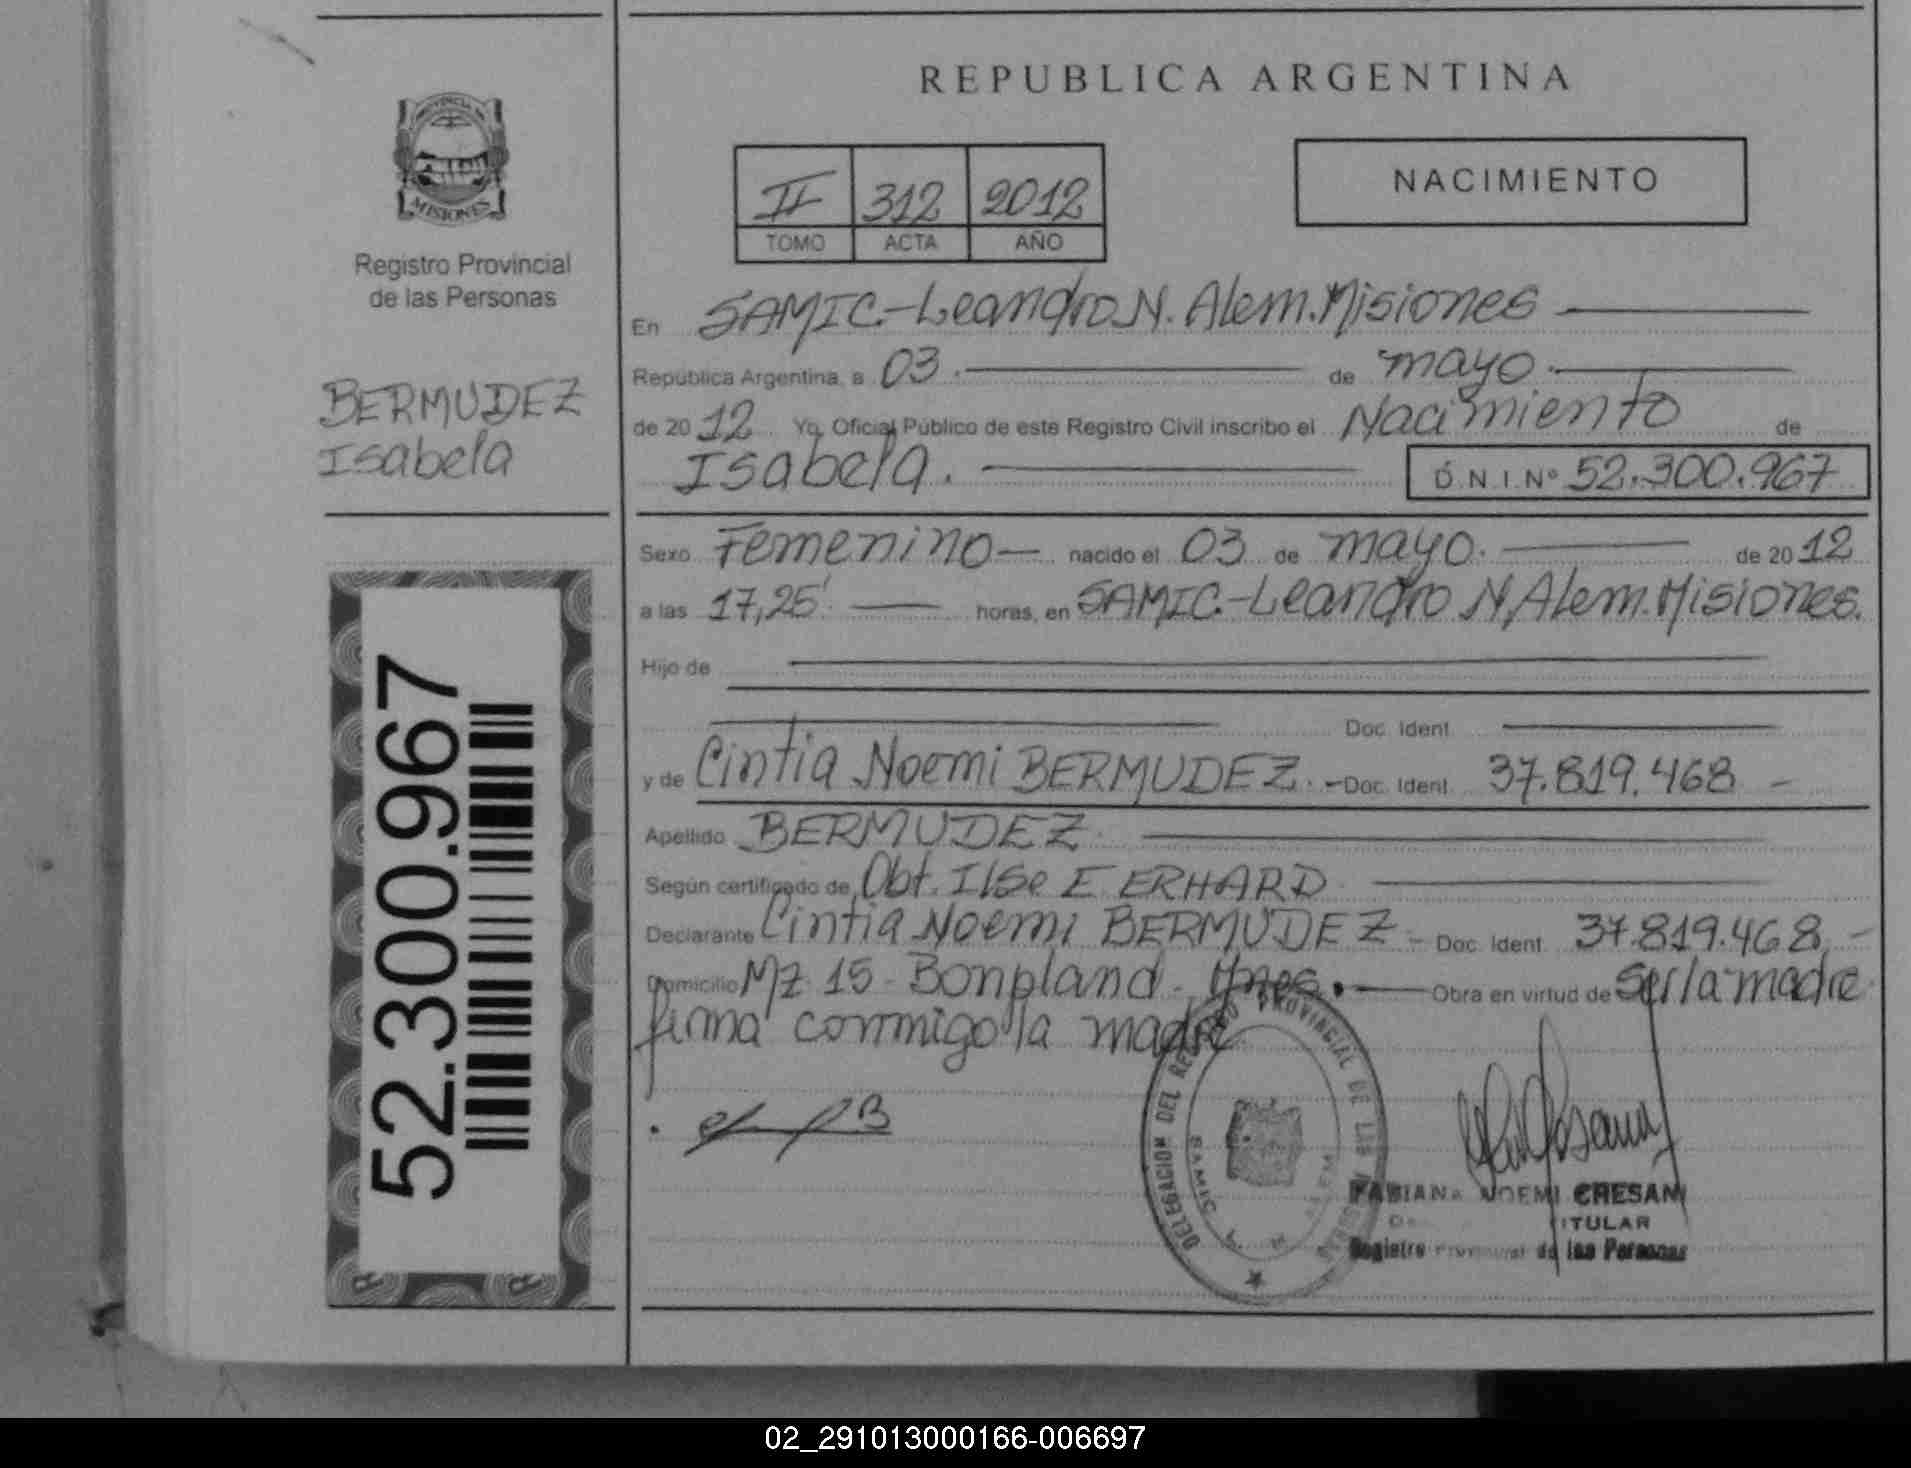 REPUBLICA ARGENTINA
PROVINCIA DE
MISIONES
Registro Provincial
de las Personas
BERMUDEZ
Isabela
52.300.967
II 312 2012
TOMO ACTA AÑO
NACIMIENTO
En SAMIC.-Leandro N. Alem. Misiones
República Argentina, a 03. de mayo.
de 2012 Yo, Oficial Público de este Registro Civil inscribo el Nacimiento de
Isabela. D.N.I. Nº 52.300.967
Sexo Femenino nacido el 03 de mayo. de 2012
a las 17,25' horas, en SAMIC.-Leandro N. Alem. Misiones.
Hijo de
Doc. Ident.
y de Cintia Noemi BERMUDEZ.- Doc. Ident. 37.819.468 -
Apellido BERMUDEZ.
Según certificado de Obt. Ilse E ERHARD
Declarante Cintia Noemi BERMUDEZ - Doc. Ident. 37.819.468 -
Domicilio Mz 15 - Bonpland - Mnes. Obra en virtud de ser la madre
firma conmigo la madre
DELEGACION DEL REGISTRO PROVINCIAL DE LAS PERSONAS
SAMIC ALEM
FABIANA NOEMI CRESAN
TITULAR
Registro Provincial de las Personas
02_291013000166-006697